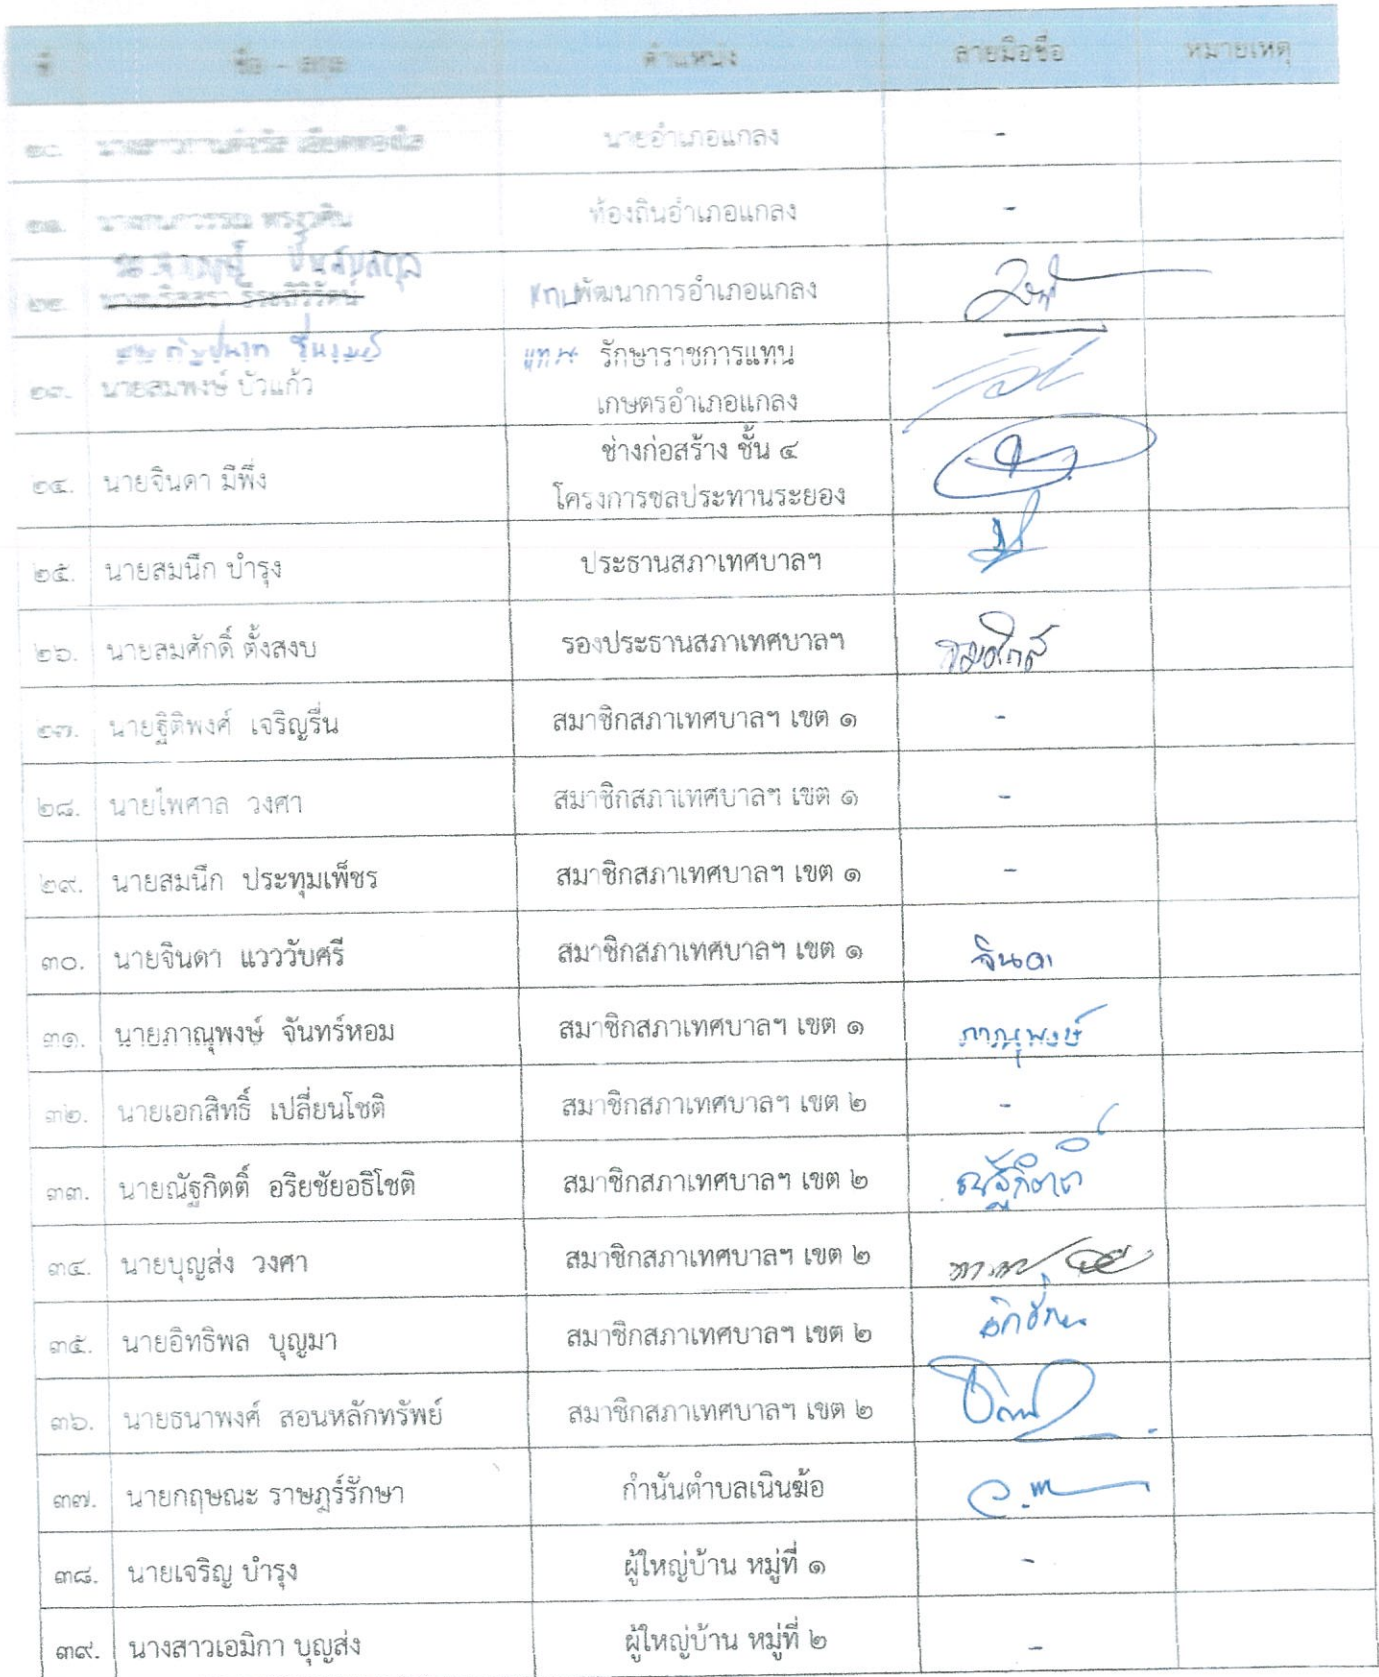 ที่ ชื่อ - สกุล ตำแหน่ง ลายมือชื่อ หมายเหตุ
๒๐. นายอำเภอแกลง -
๒๑. ท้องถิ่นอำเภอแกลง -
๒๒. พัฒนาการอำเภอแกลง
แทน รักษาราชการแทน
๒๓. นายสมพงษ์ บัวแก้ว
เกษตรอำเภอแกลง
ช่างก่อสร้าง ชั้น ๔
๒๔. นายจินดา มีพึ่ง
โครงการชลประทานระยอง
๒๕. นายสมนึก บำรุง ประธานสภาเทศบาลฯ
๒๖. นายสมศักดิ์ ตั้งสงบ รองประธานสภาเทศบาลฯ สมศักดิ์
๒๗. นายฐิติพงศ์ เจริญรื่น สมาชิกสภาเทศบาลฯ เขต ๑ -
๒๘. นายไพศาล วงศา สมาชิกสภาเทศบาลฯ เขต ๑ -
๒๙. นายสมนึก ประทุมเพ็ชร สมาชิกสภาเทศบาลฯ เขต ๑ -
๓๐. นายจินดา แวววับศรี สมาชิกสภาเทศบาลฯ เขต ๑ จินดา
๓๑. นายภาณุพงษ์ จันทร์หอม สมาชิกสภาเทศบาลฯ เขต ๑ ภาณุพงษ์
๓๒. นายเอกสิทธิ์ เปลี่ยนโชติ สมาชิกสภาเทศบาลฯ เขต ๒ -
๓๓. นายณัฐกิตติ์ อริยชัยอธิโชติ สมาชิกสภาเทศบาลฯ เขต ๒ ณัฐกิตติ์
๓๔. นายบุญส่ง วงศา สมาชิกสภาเทศบาลฯ เขต ๒
๓๕. นายอิทธิพล บุญมา สมาชิกสภาเทศบาลฯ เขต ๒
๓๖. นายธนาพงศ์ สอนหลักทรัพย์ สมาชิกสภาเทศบาลฯ เขต ๒
๓๗. นายกฤษณะ ราษฎร์รักษา กำนันตำบลเนินฆ้อ
๓๘. นายเจริญ บำรุง ผู้ใหญ่บ้าน หมู่ที่ ๑ -
๓๙. นางสาวเอมิกา บุญส่ง ผู้ใหญ่บ้าน หมู่ที่ ๒ -